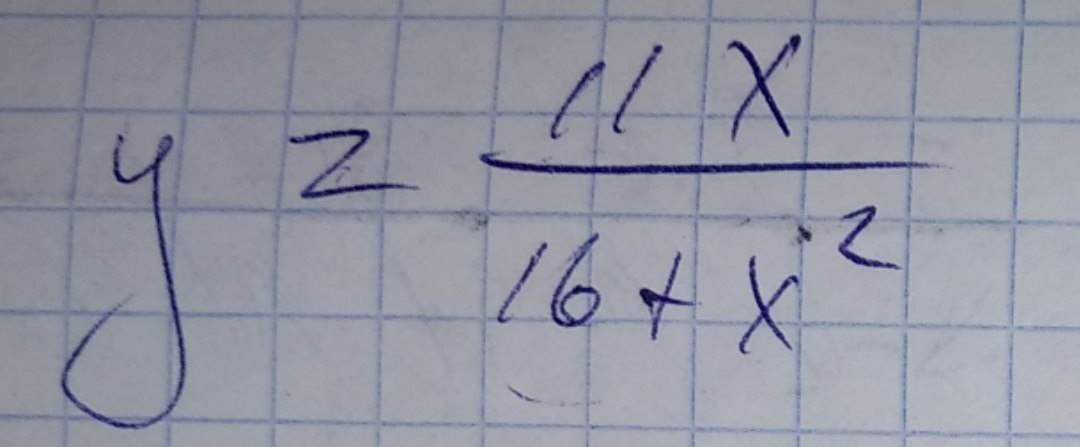 y = \frac{11x}{16+x^2}